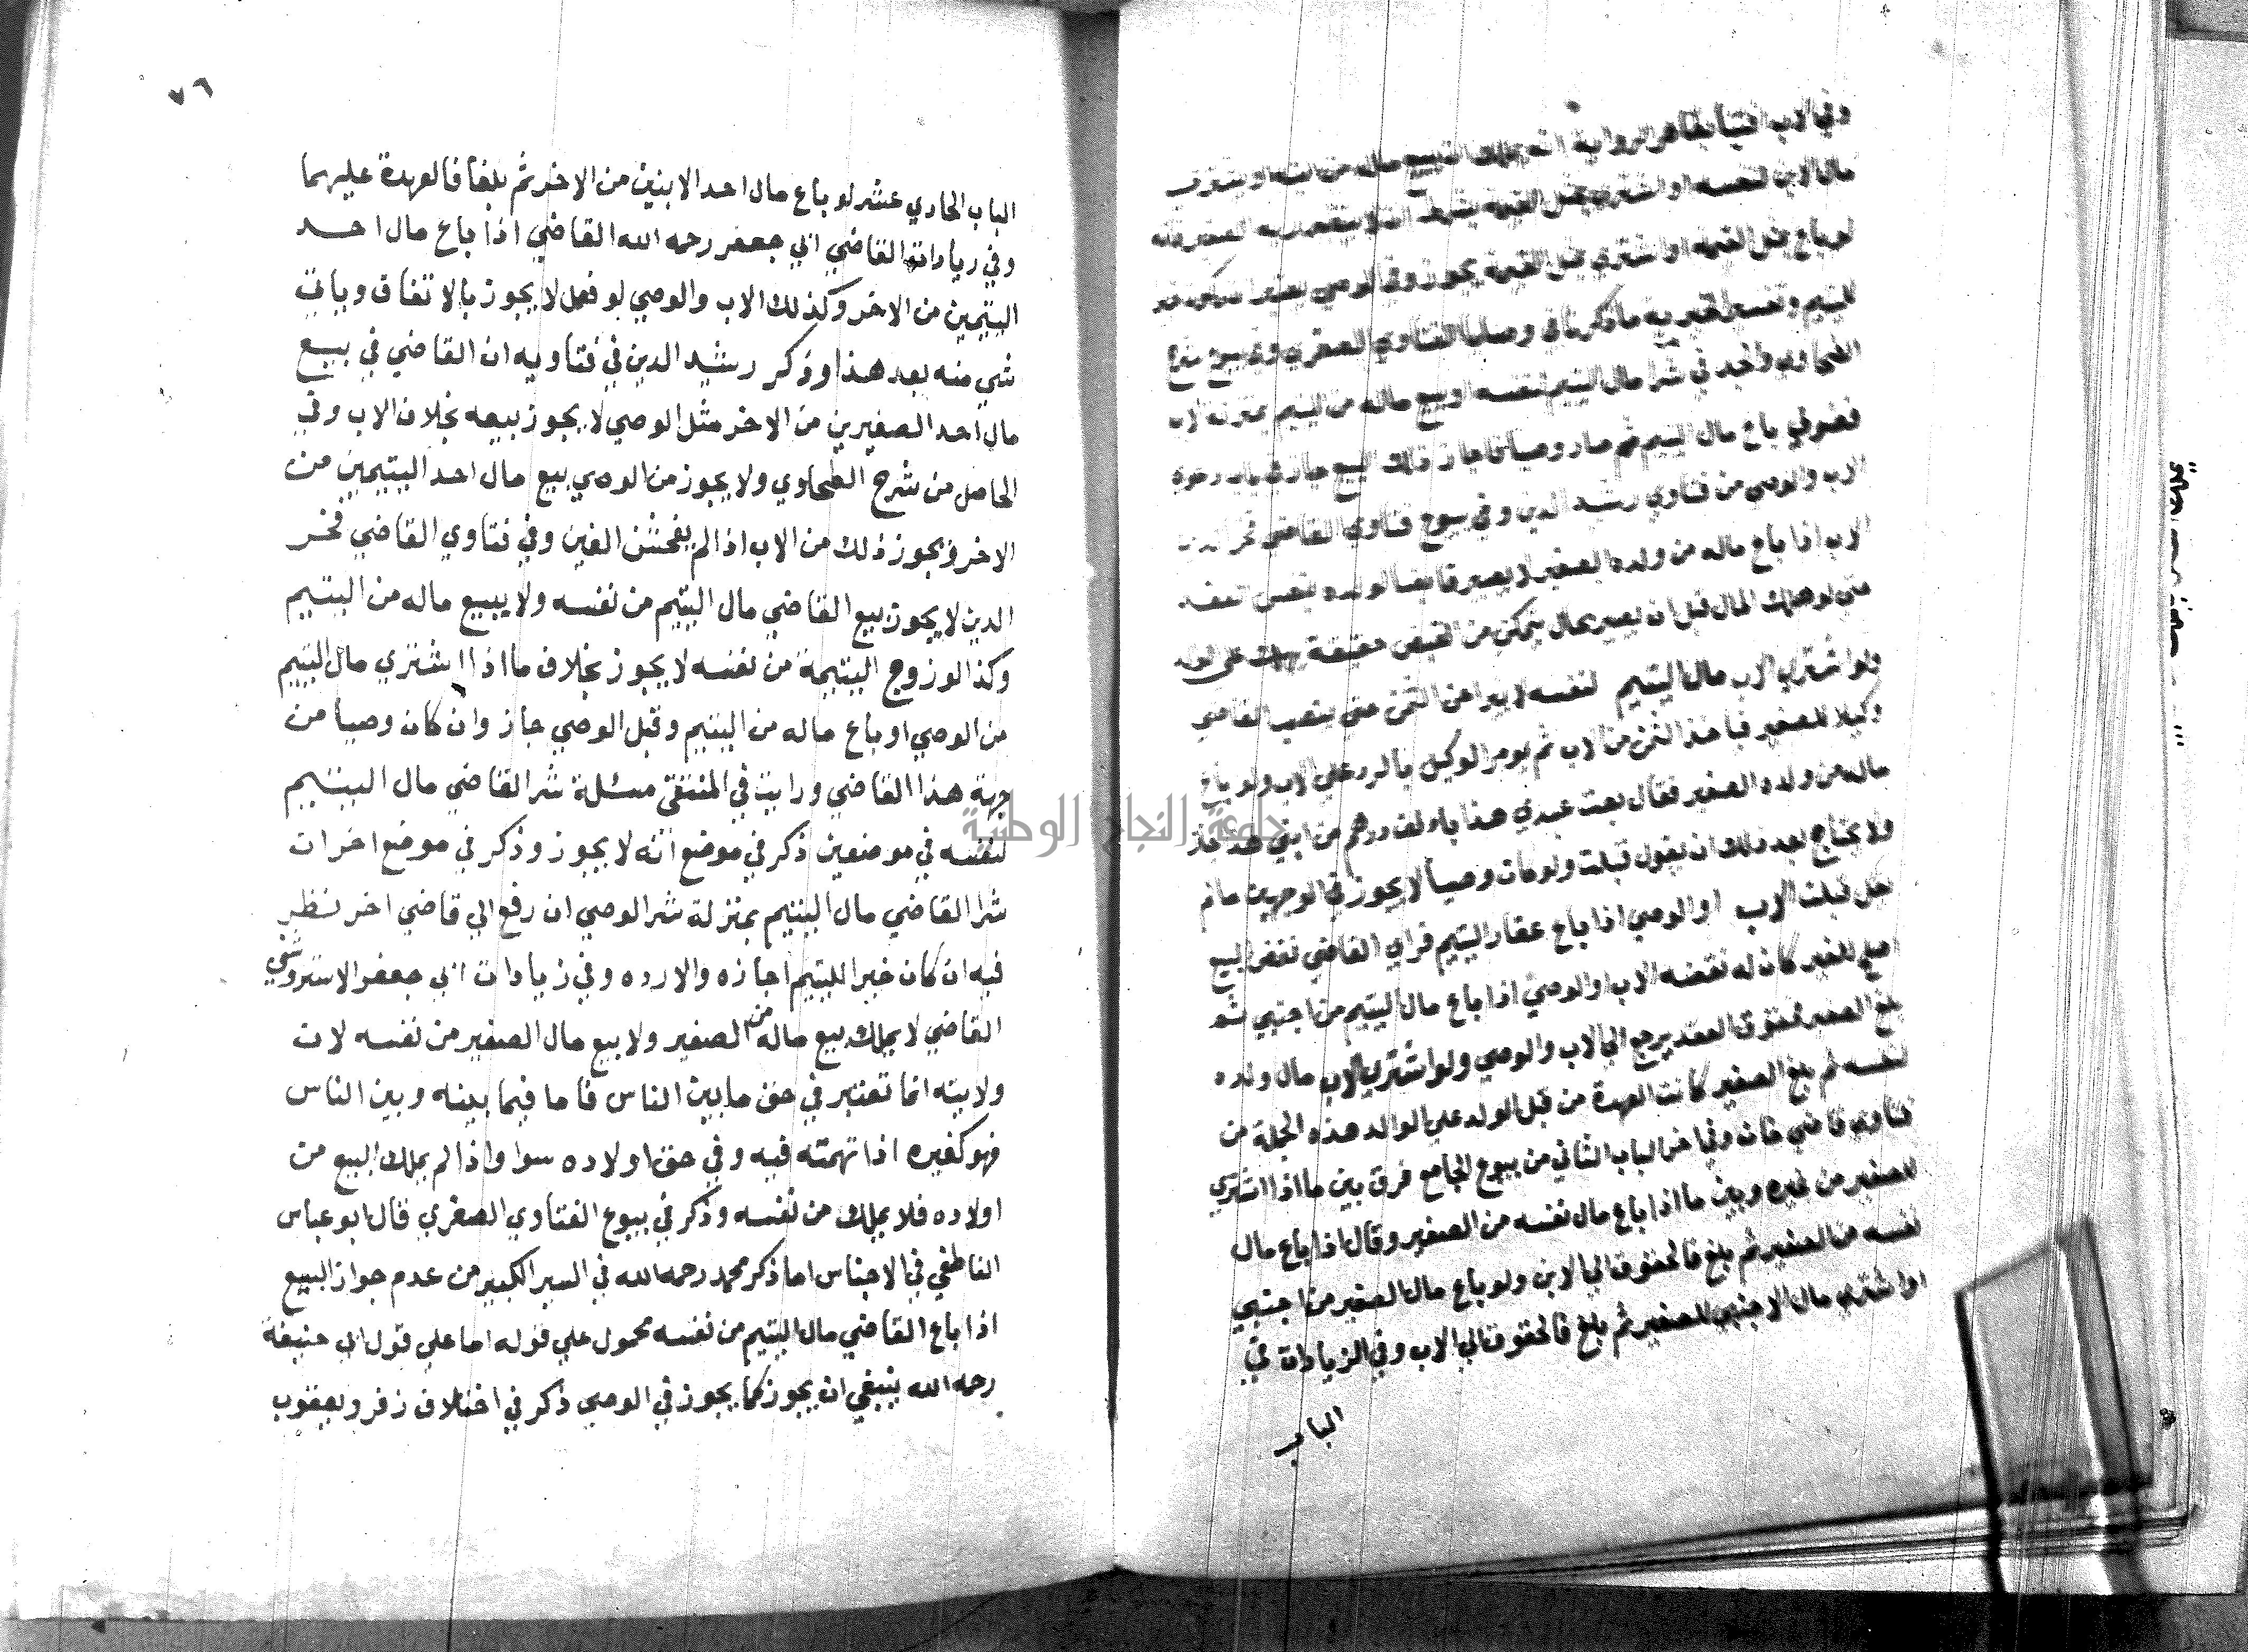 وفي الاب افتيا بظاهر الرواية انه يملك ان يبيع ماله من ابنه او يشتري
مال الابن لنفسه او اشتري بمثل القيمة بشرط ان لا يتضرر به الصغير فانه
لو باع بمثل القيمة او اشتري بمثل القيمة يجوز وفي الوصي يعتبر ان يكون خير
لليتيم وتفسير الخيرية ما ذكرنا في وصايا الفتاوي الصغري وفي بيوع شرح
الطحاوي والجد في شرا مال اليتيم لنفسه او بيع ماله من اليتيم بمنزلة الاب
فضولي باع مال اليتيم ثم صار وصيا فاجاز ذلك البيع جاز في باب دعوي
الاب والوصي من فتاوي رشيد الدين وفي بيوع فتاوي القاضي فخر الدين
الاب اذا باع ماله من ولده الصغير لا يصير قابضا لولده بنفس العقد
حتي لو هلك المال قبل ان يصير بحال يتمكن من القبض حقيقة يهلك علي الوالد
ولو اشتري الاب مال اليتيم لنفسه لا يبرا عن الثمن حتي ينصب القاضي
وكيلا للصغير فياخذ الثمن من الاب ثم يومر الوكيل بالرد علي الاب ولو باع
ماله من ولده الصغير فقال بعت عبدي هذا بالف درهم من ابني هذا جاز
ولا يحتاج بعد ذلك ان يقول قبلت ولو مات وصيا لا يجوز في الوجهين ما لم
يقل قبلت الاب او الوصي اذا باع عقار اليتيم فراي القاضي نقض البيع
اصلح للصغير كان له نقضه الاب او الوصي اذا باع مال اليتيم من اجنبي ثم
بلغ الصغير فحقوق العقد يرجع الي الاب والوصي ولو اشتري الاب مال ولده
لنفسه ثم بلغ الصغير كانت العهدة من قبل الولد علي الوالد هذه الجملة من
فتاوي قاضي خان وفي اخر الباب الثاني من بيوع الجامع فرق بين ما اذا اشتري
للصغير من غيره وبين ما اذا باع مال نفسه من الصغير وقال اذا باع مال
نفسه من الصغير ثم بلغ فالحقوق الي الابن ولو باع مال الصغير من اجنبي
او اشتري مال الاجنبي للصغير ثم بلغ فالحقوق الي الاب وفي الزيادات في
الباب
٧٦
الباب الحادي عشر لو باع مال احد الابنين من الاخر ثم بلغا فالعهدة عليهما
وفي زيادات القاضي ابي جعفر رحمه الله القاضي اذا باع مال احد
اليتيمين من الاخر وكذلك الاب والوصي لو فعل لا يجوز بالاتفاق وياتي
شي منه بعد هذا وذكر رشيد الدين في فتاويه ان القاضي في بيع
مال احد الصغيرين من الاخر مثل الوصي لا يجوز بيعه بخلاف الاب وفي
الحاصل من شرح الطحاوي ولا يجوز من الوصي بيع مال احد اليتيمين من
الاخر ويجوز ذلك من الاب اذا لم يفحش الغبن وفي فتاوي القاضي فخر
الدين لا يجوز بيع القاضي مال اليتيم من نفسه ولا يبيع ماله من اليتيم
وكذا لو زوج اليتيمة من نفسه لا يجوز بخلاف ما اذا اشتري مال اليتيم
من الوصي او باع ماله من اليتيم وقبل الوصي جاز وان كان وصيا من
جهة هذا القاضي ورايت في المنتقي مسئلة شرا القاضي مال اليتيم
لنفسه في موضعين ذكر في موضع انه لا يجوز وذكر في موضع اخر ان
شرا القاضي مال اليتيم بمنزلة شرا الوصي ان رفع الي قاضي اخر نظر
فيه ان كان خيرا لليتيم اجازه والا رده وفي زيادات ابي جعفر الاستروشني
القاضي لا يملك بيع ماله من الصغير ولا بيع مال الصغير من نفسه لان
ولايته انما تعتبر في حق ما بين الناس فاما فيما بينه وبين الناس
فهو كغيره اذا تهمته فيه وفي حق اولاده سوا واذا لم يملك البيع من
اولاده فلا يملك من نفسه وذكر في بيوع الفتاوي الصغري قال ابو عباس
الناطفي في الاجناس اما ذكر محمد رحمه الله في السير الكبير من عدم جواز البيع
اذا باع القاضي مال اليتيم من نفسه محمول علي قوله اما علي قول ابي حنيفة
رحمه الله ينبغي ان يجوز كما يجوز في الوصي ذكر في اختلاف زفر ويعقوب
جامعة النجاح الوطنية